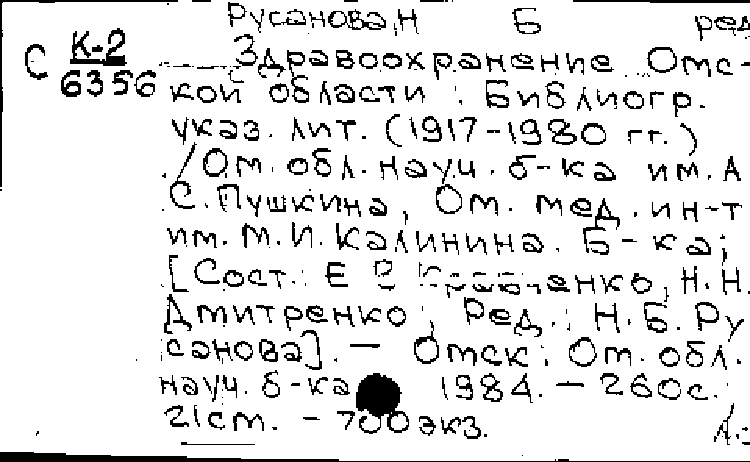 Русанова, Н Б ред
С К-2 Здравоохранение Омс-
6356 кой области : Библиогр.
указ. лит. (1917-1980 гг.)
/Ом. обл. науч. б-ка им. А
С. Пушкина, Ом. мед. ин-т
им. М.И. Калинина. Б-ка;
[Сост.: Е В Кравченко, Н.Н.
Дмитренко; Ред.: Н.Б. Ру
санова]. — Омск: Ом. обл.
науч. б-ка 1984. — 260с.
21см. — 700экз.